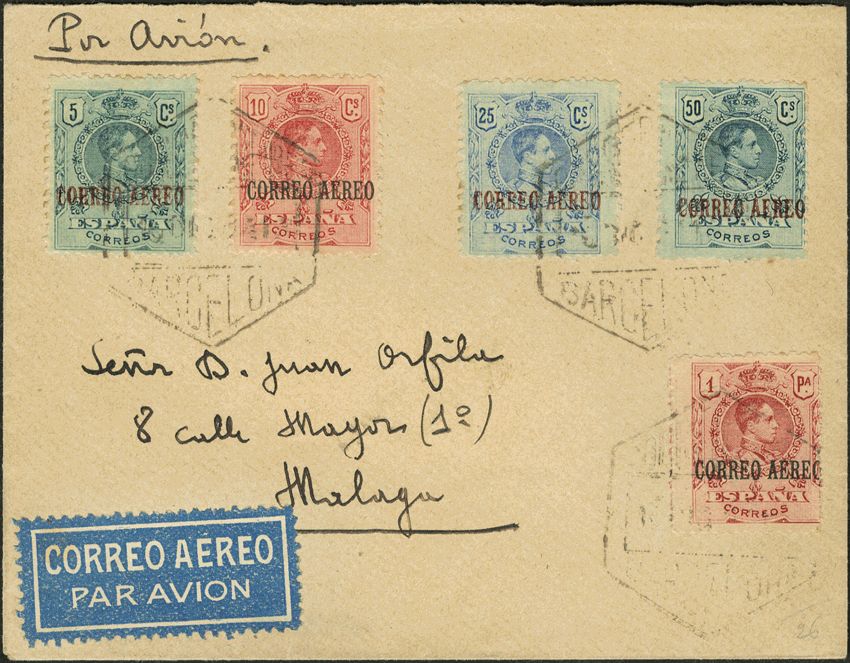 Por Avión.
5 Cs
CORREO AEREO
ESPAÑA
CORREOS
10 Cs
CORREO AEREO
ESPAÑA
CORREOS
25 Cs
CORREO AEREO
ESPAÑA
CORREOS
50 Cs
CORREO AEREO
ESPAÑA
CORREOS
BARCELONA
BARCELONA
Señor D. Juan Orfila
8 calle Mayor (1º)
Malaga
1 PA
CORREO AEREO
ESPAÑA
CORREOS
CORREO AÉREO
PAR AVION
26